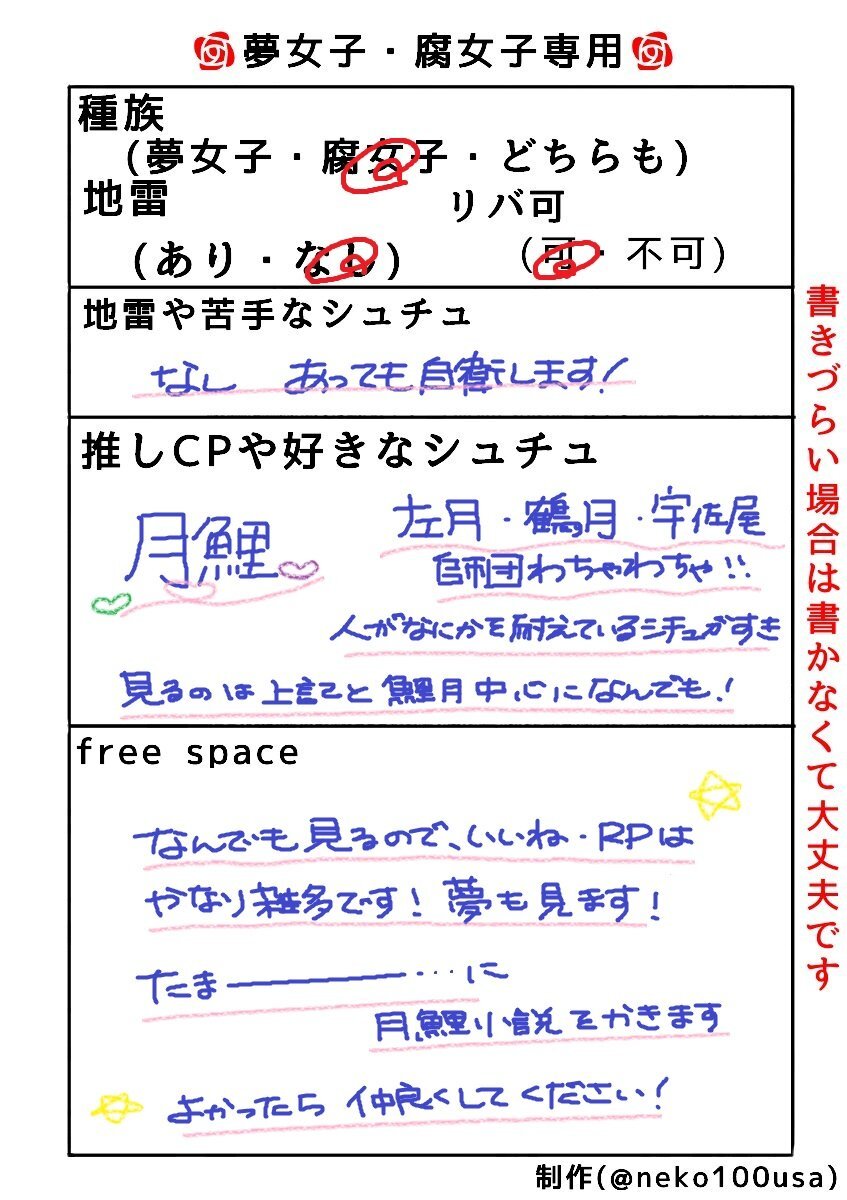 夢女子・腐女子専用
種族
(夢女子・腐女子・どちらも)
地雷
リバ可
(あり・なし)
(可・不可)
地雷や苦手なシュチュ
なし あっても自衛します!
推しCPや好きなシュチュ
月鯉
左月・鶴月・宇佐尾
師団わちゃわちゃ!!
人がなにかを耐えているシチュがすき
見るのは上記と鯉月中心になんでも!
free space
なんでも見るので、いいね・RPは
かなり雑多です!夢も見ます!
たまーーーー…に
月鯉小説をかきます
よかったら仲良くしてください!
書きづらい場合は書かなくて大丈夫です
制作(@neko100usa)